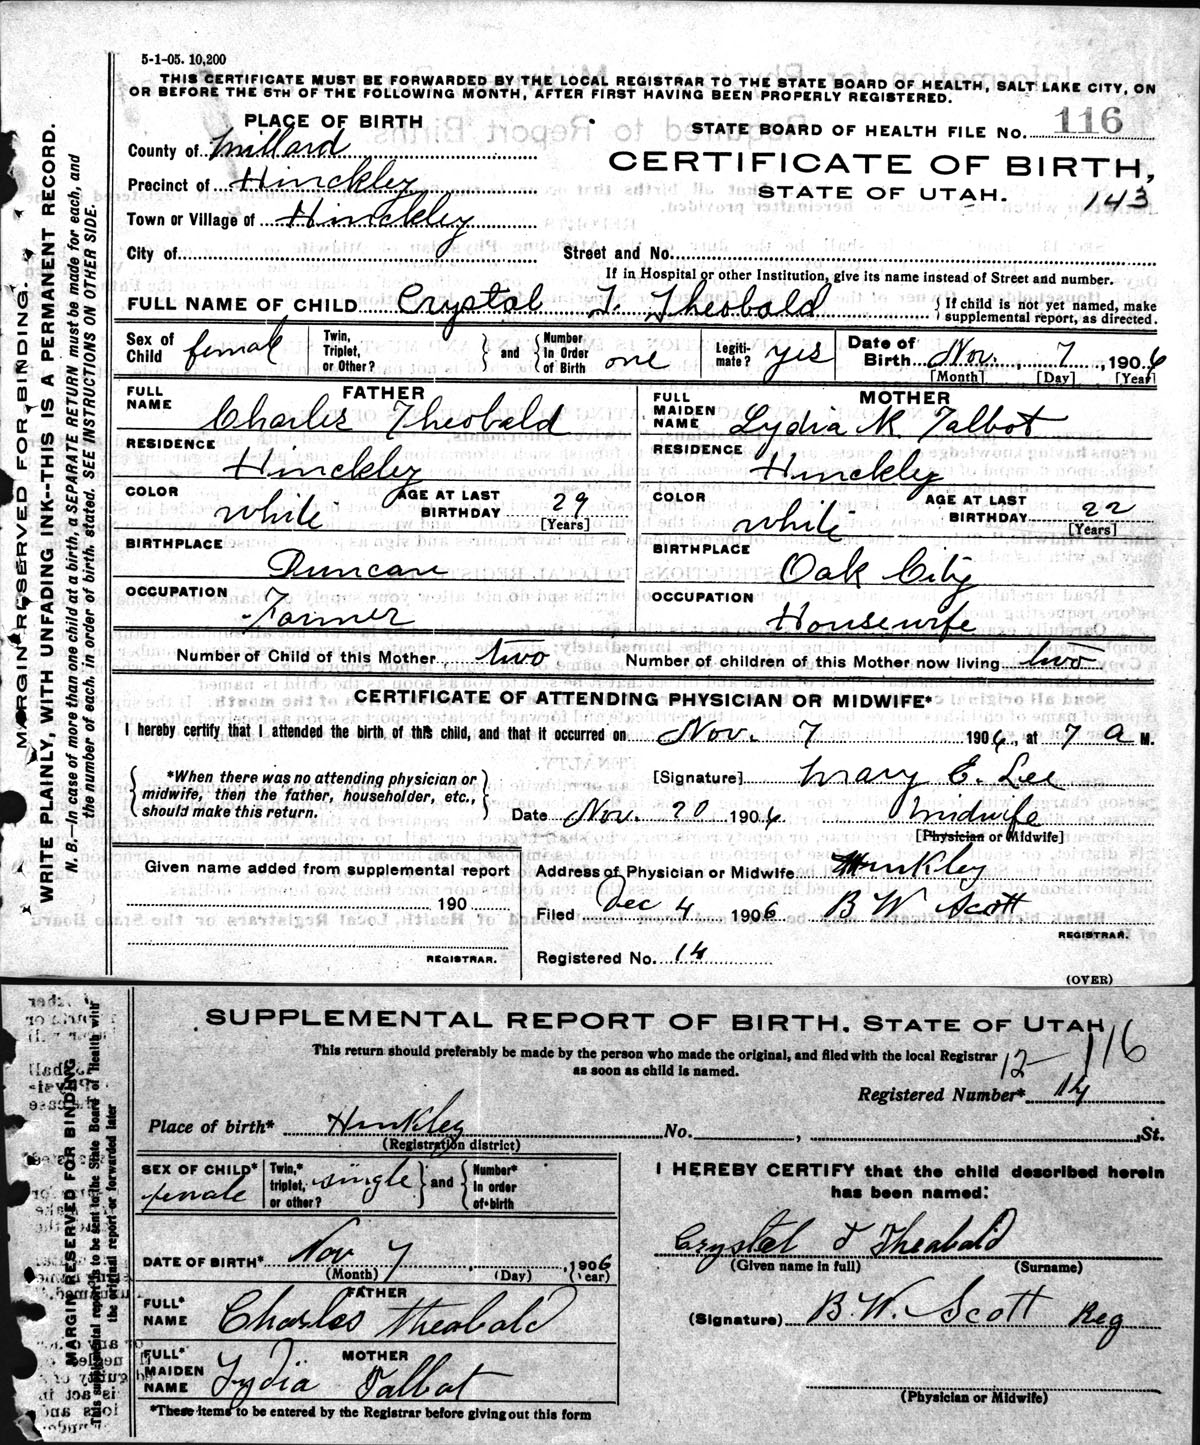 5-1-05. 10,200
THIS CERTIFICATE MUST BE FORWARDED BY THE LOCAL REGISTRAR TO THE STATE BOARD OF HEALTH, SALT LAKE CITY, ON
OR BEFORE THE 5TH OF THE FOLLOWING MONTH, AFTER FIRST HAVING BEEN PROPERLY REGISTERED.
PLACE OF BIRTH
STATE BOARD OF HEALTH FILE NO. 116
County of Millard
CERTIFICATE OF BIRTH,
Precinct of Hinckley
STATE OF UTAH.
143
Town or Village of Hinckley
City of
Street and No.
If in Hospital or other Institution, give its name instead of Street and number.
FULL NAME OF CHILD Crystal T. Theobald {If child is not yet named, make
supplemental report, as directed.
Sex of Child female
Twin, Triplet, or Other? } and { Number in Order of Birth one
Legitimate? yes
Date of Birth Nov. 7, 1906
[Month] [Day] [Year]
FATHER
FULL NAME Charles Theobald
MOTHER
FULL MAIDEN NAME Lydia K. Talbot
RESIDENCE Hinckley
RESIDENCE Hinckley
COLOR white AGE AT LAST BIRTHDAY 29 [Years]
COLOR white AGE AT LAST BIRTHDAY 22 [Years]
BIRTHPLACE Duncan
BIRTHPLACE Oak City
OCCUPATION Farmer
OCCUPATION Housewife
Number of Child of this Mother two Number of children of this Mother now living two
CERTIFICATE OF ATTENDING PHYSICIAN OR MIDWIFE*
I hereby certify that I attended the birth of this child, and that it occurred on Nov. 7 1906, at 7 a M.
{*When there was no attending physician or
midwife, then the father, householder, etc.,
should make this return.}
[Signature] Mary E. Lee
Date Nov. 20 1906 Midwife
[Physician or Midwife]
Given name added from supplemental report
190
REGISTRAR.
Address of Physician or Midwife Hinkley
Filed Dec 4 1906 B W Scott
REGISTRAR.
Registered No. 14
(OVER)
MARGIN RESERVED FOR BINDING.
WRITE PLAINLY, WITH UNFADING INK--THIS IS A PERMANENT RECORD.
N. B.—In case of more than one child at a birth, a SEPARATE RETURN must be made for each, and
the number of each, in order of birth, stated. SEE INSTRUCTIONS ON OTHER SIDE.
SUPPLEMENTAL REPORT OF BIRTH. STATE OF UTAH
This return should preferably be made by the person who made the original, and filed with the local Registrar
as soon as child is named.
12-116
Registered Number* 14
Place of birth* Hinkley No. , St.
(Registration district)
SEX OF CHILD* female
Twin,* triplet, or other? single } and { Number* in order of birth
I HEREBY CERTIFY that the child described herein
has been named:
DATE OF BIRTH* Nov 7, 1906
(Month) (Day) (Year)
Crystel T Theabald
(Given name in full) (Surname)
FATHER
FULL* NAME Charles Theobald
(Signature) B. W. Scott Reg
MOTHER
FULL* MAIDEN NAME Lydia Talbot
(Physician or Midwife)
*These items to be entered by the Registrar before giving out this form
MARGIN RESERVED FOR BINDING
This supplemental report is to be sent to the State Board of Health with
the original report or forwarded later